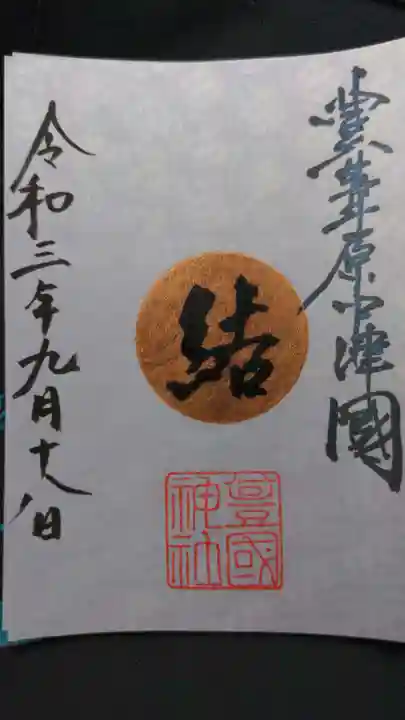 豊葦原中津國
結
豊國
神社
令和三年九月十八日